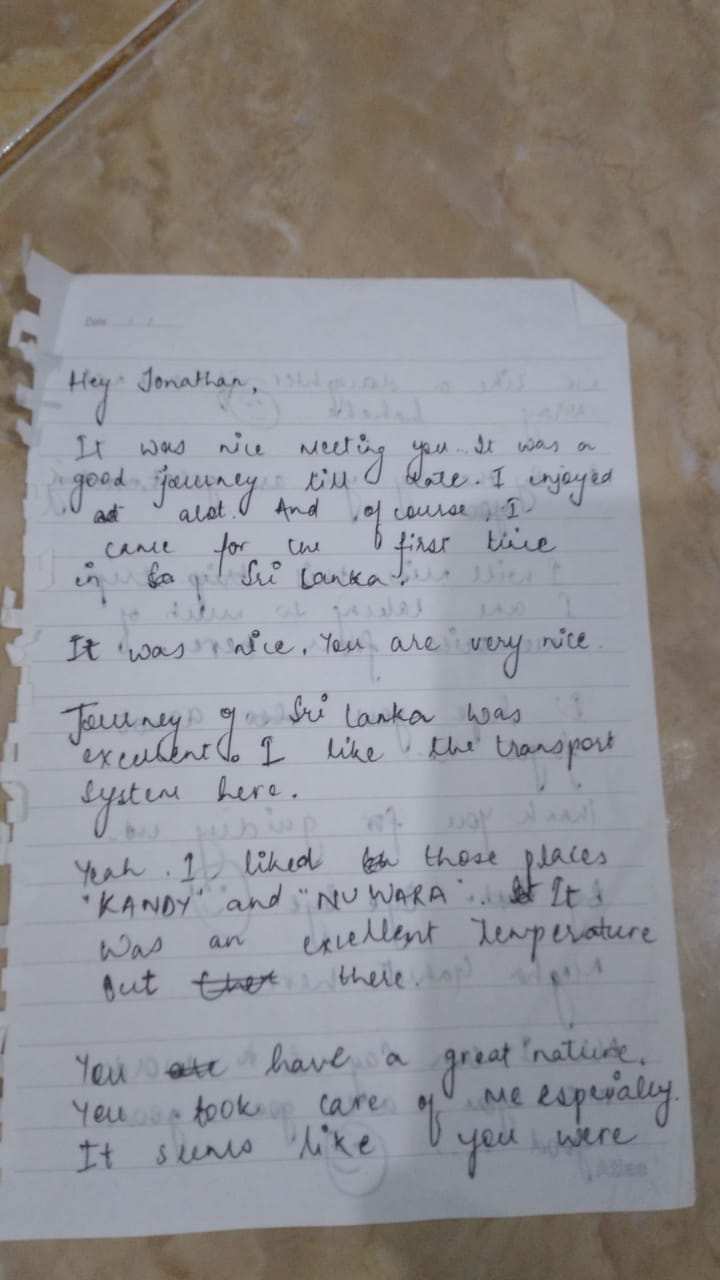 Date
Hey Jonathan,
It was nice meeting you... It was a
good journey till date. I enjoyed
alot. And of course, I
came for the first time
in Sri Lanka.
It was nice. You are very nice.
Journey of Sri Lanka was
excellent. I like the transport
system here.
Yeah. I liked those places
"KANDY" and "NUWARA".. It
was an excellent Temperature
out there.
You have a great nature.
You took care of me especially.
It seems like you were